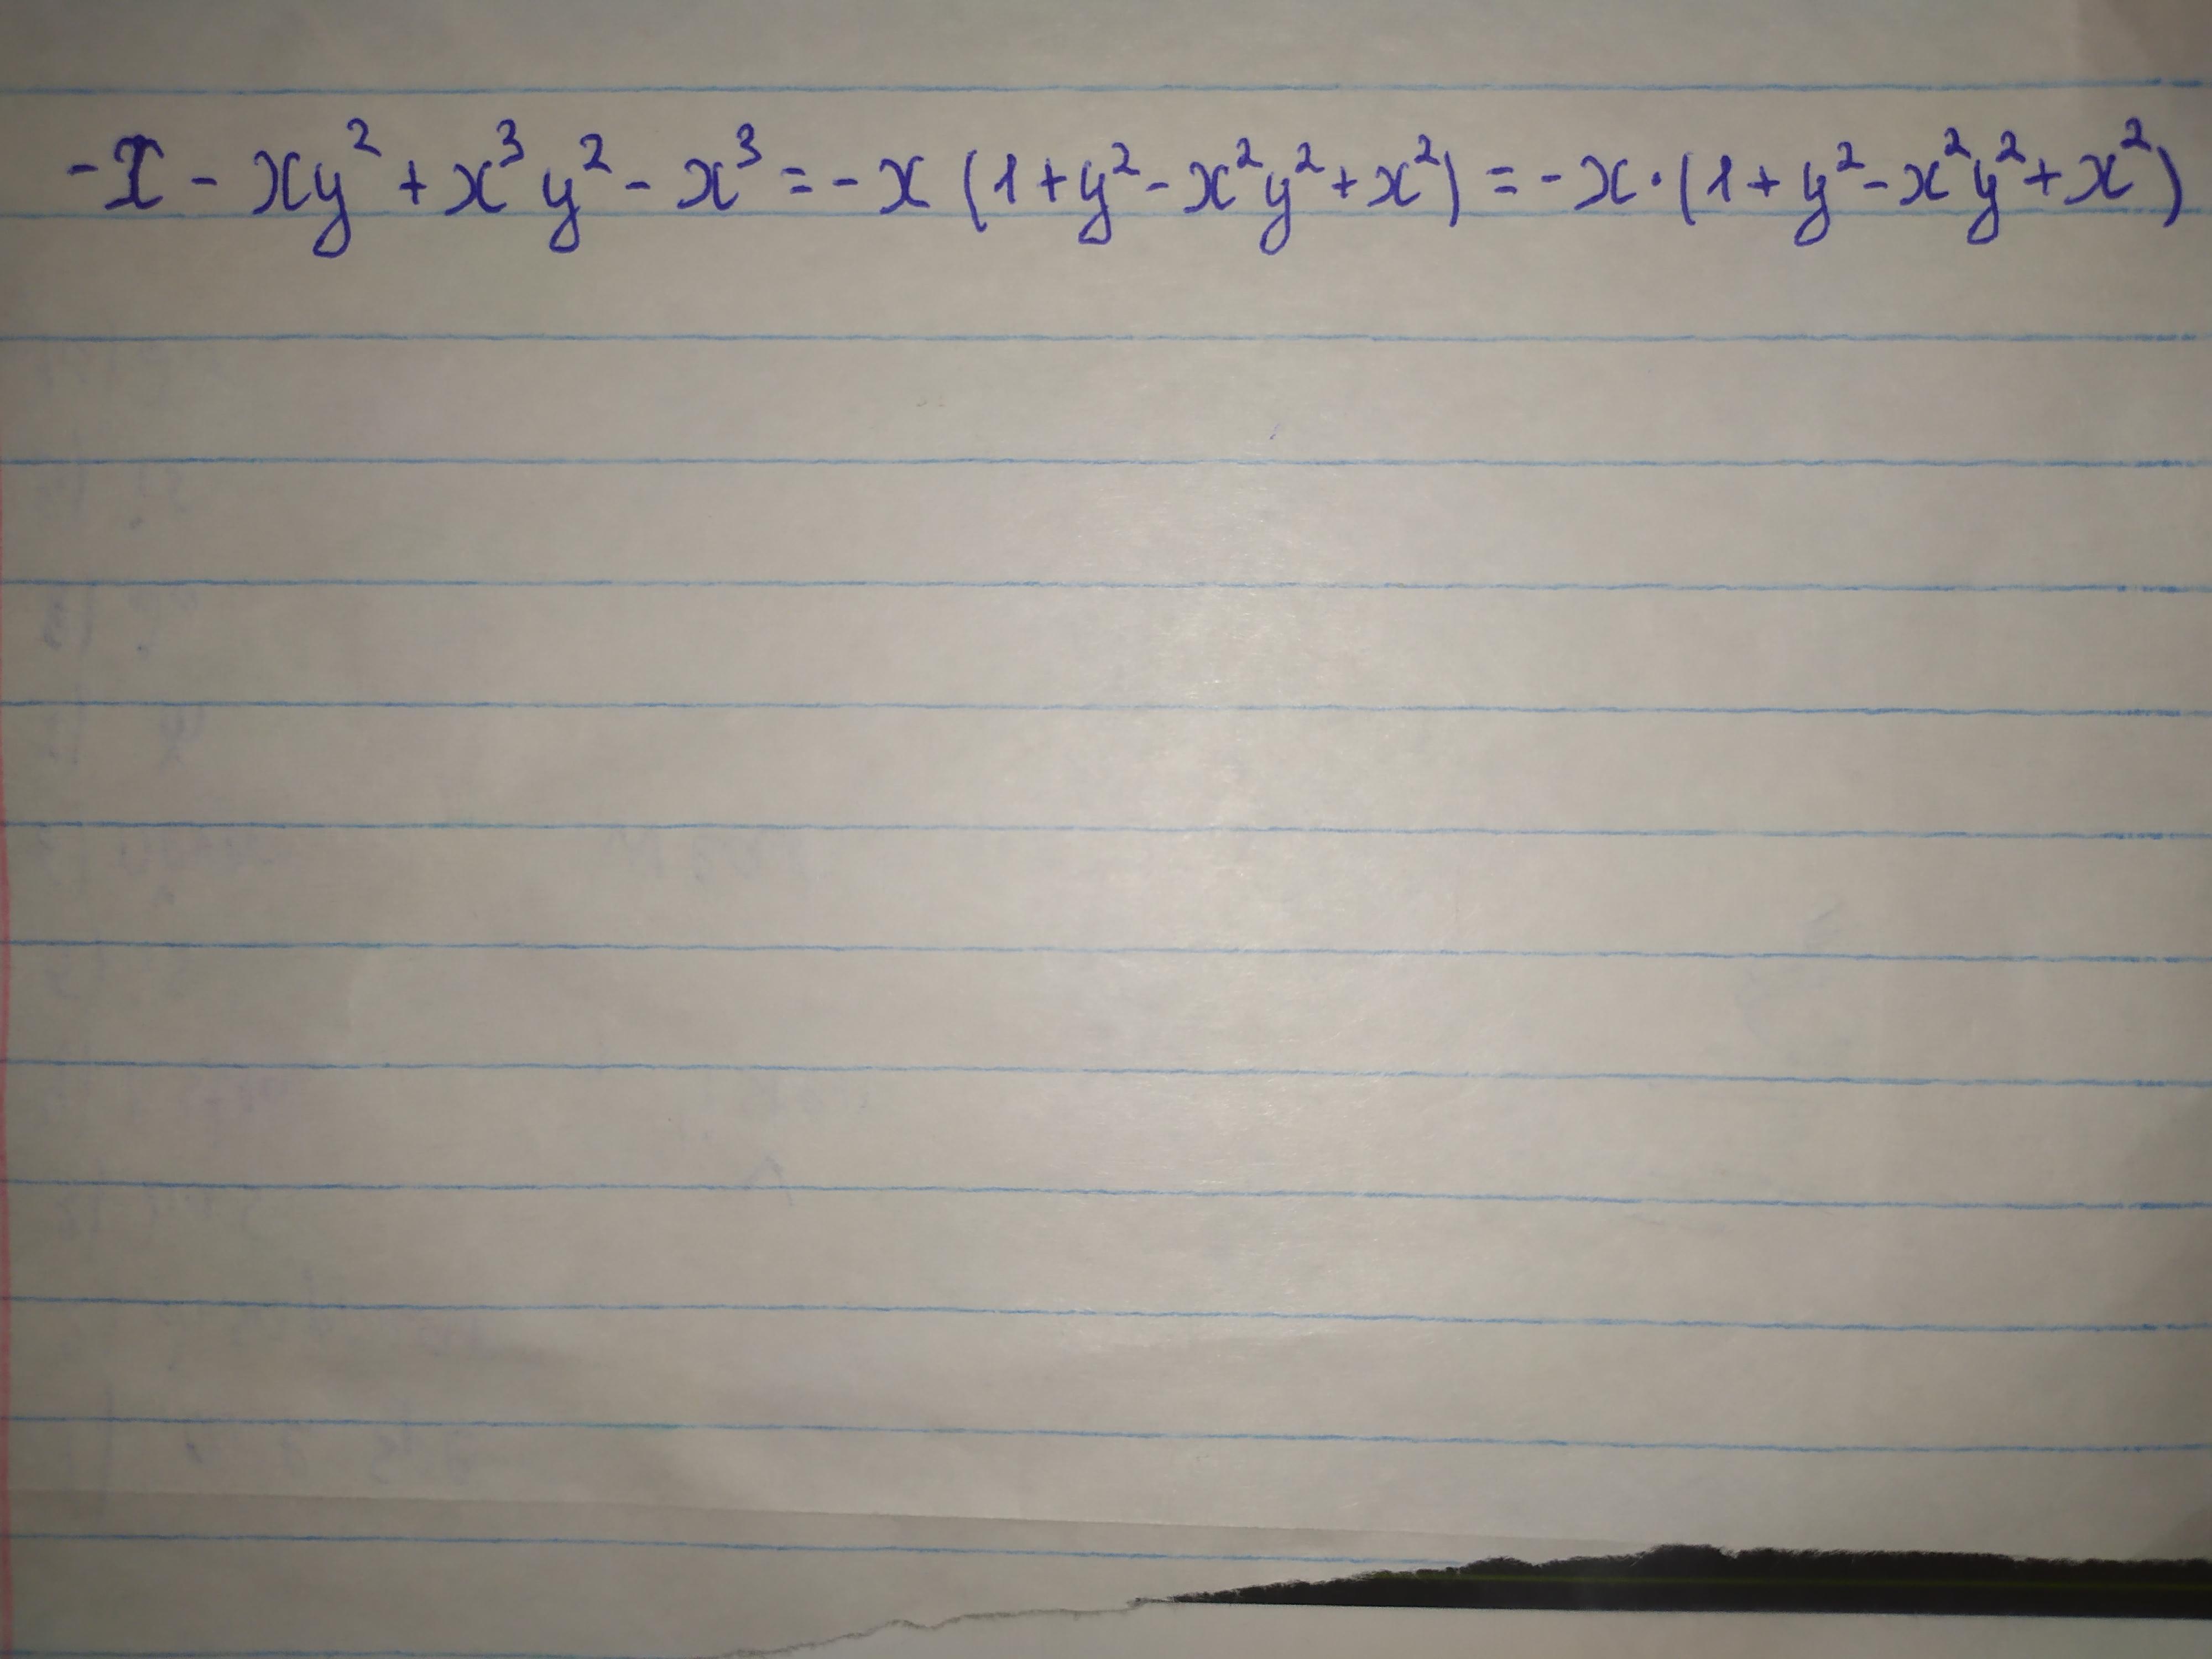 -x - xy² + x³y² - x³ = -x (1 + y² - x²y² + x²) = -x · (1 + y² - x²y² + x²)